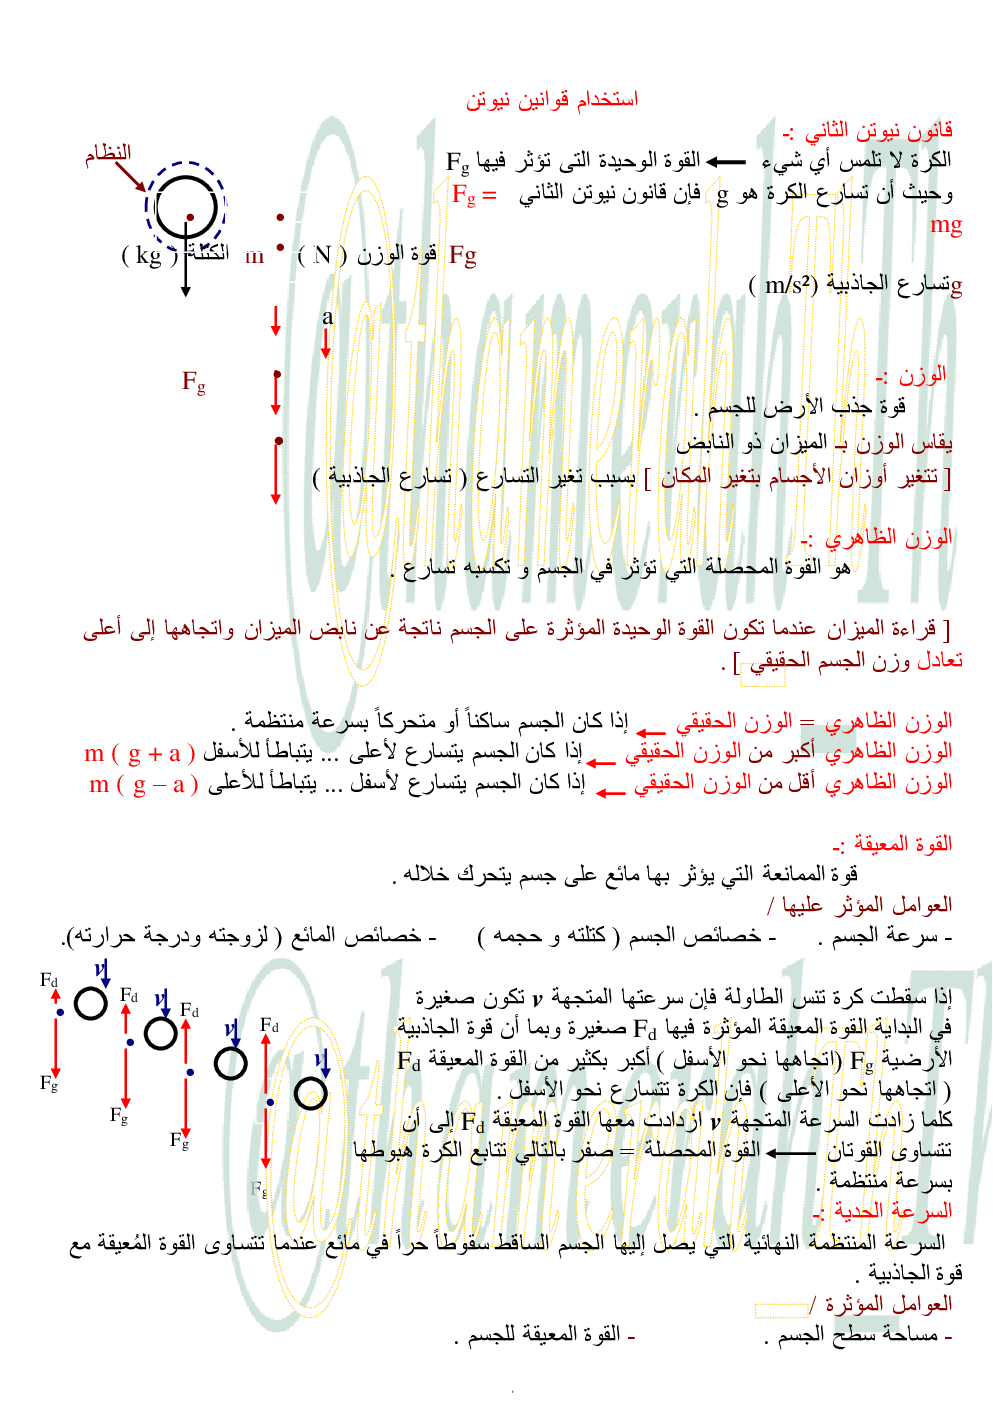 استخدام قوانين نيوتن
قانون نيوتن الثاني :-
النظام
الكرة لا تلمس أي شيء القوة الوحيدة التى تؤثر فيها Fg
وحيث أن تسارع الكرة هو g فإن قانون نيوتن الثاني Fg =
mg
Fg قوة الوزن ( N ) m الكتلة ( kg )
g تسارع الجاذبية (m/s² )
a
Fg
الوزن :-
قوة جذب الأرض للجسم .
يقاس الوزن بـ الميزان ذو النابض
[ تتغير أوزان الأجسام بتغير المكان ] بسبب تغير التسارع ( تسارع الجاذبية )
الوزن الظاهري :-
هو القوة المحصلة التي تؤثر في الجسم و تكسبه تسارع .
[ قراءة الميزان عندما تكون القوة الوحيدة المؤثرة على الجسم ناتجة عن نابض الميزان واتجاهها إلى أعلى
تعادل وزن الجسم الحقيقي ] .
الوزن الظاهري = الوزن الحقيقي إذا كان الجسم ساكناً أو متحركاً بسرعة منتظمة .
الوزن الظاهري أكبر من الوزن الحقيقي إذا كان الجسم يتسارع لأعلى ... يتباطأ للأسفل m ( g + a )
الوزن الظاهري أقل من الوزن الحقيقي إذا كان الجسم يتسارع لأسفل ... يتباطأ للأعلى m ( g – a )
القوة المعيقة :-
قوة الممانعة التي يؤثر بها مائع على جسم يتحرك خلاله .
العوامل المؤثر عليها /
- سرعة الجسم . - خصائص الجسم ( كتلته و حجمه ) - خصائص المائع ( لزوجته ودرجة حرارته).
إذا سقطت كرة تنس الطاولة فإن سرعتها المتجهة v تكون صغيرة
في البداية القوة المعيقة المؤثرة فيها Fd صغيرة وبما أن قوة الجاذبية
الأرضية Fg (اتجاهها نحو الأسفل ) أكبر بكثير من القوة المعيقة Fd
( اتجاهها نحو الأعلى ) فإن الكرة تتسارع نحو الأسفل .
كلما زادت السرعة المتجهة v ازدادت معها القوة المعيقة Fd إلى أن
تتساوى القوتان القوة المحصلة = صفر بالتالي تتابع الكرة هبوطها
بسرعة منتظمة .
Fd v Fd v Fd v Fd v
Fg Fg Fg Fg
السرعة الحدية :-
السرعة المنتظمة النهائية التي يصل إليها الجسم الساقط سقوطاً حراً في مائع عندما تتساوى القوة المُعيقة مع
قوة الجاذبية .
العوامل المؤثرة /
- مساحة سطح الجسم . - القوة المعيقة للجسم .